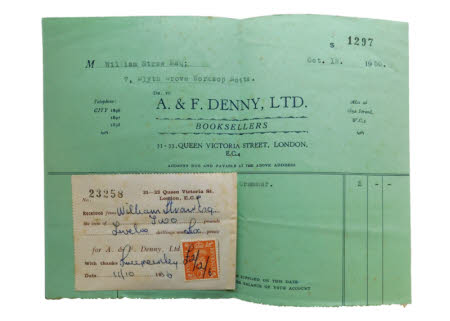 S 1297
M William Straw Esq:
Oct. 12. 1950.
7, Blyth Grove Worksop Notts.
Dr. to
Telephone:
CITY
A. & F. DENNY, LTD.
BOOKSELLERS
Also at
Strand,
W.C.2
21-23, QUEEN VICTORIA STREET, LONDON,
E.C.4
ACCOUNT DUE AND PAYABLE AT THE ABOVE ADDRESS
No. 23258
21-23 Queen Victoria St.
London, E.C.4
Received from William Straw Esq
the sum of Two pounds
Twelve shillings and Six pence
for A. & F. Denny, Ltd
With thanks
Date 11/10 1950
Grammar. 2 - -
SUPPLIED ON THIS DATE
BALANCE OF YOUR ACCOUNT